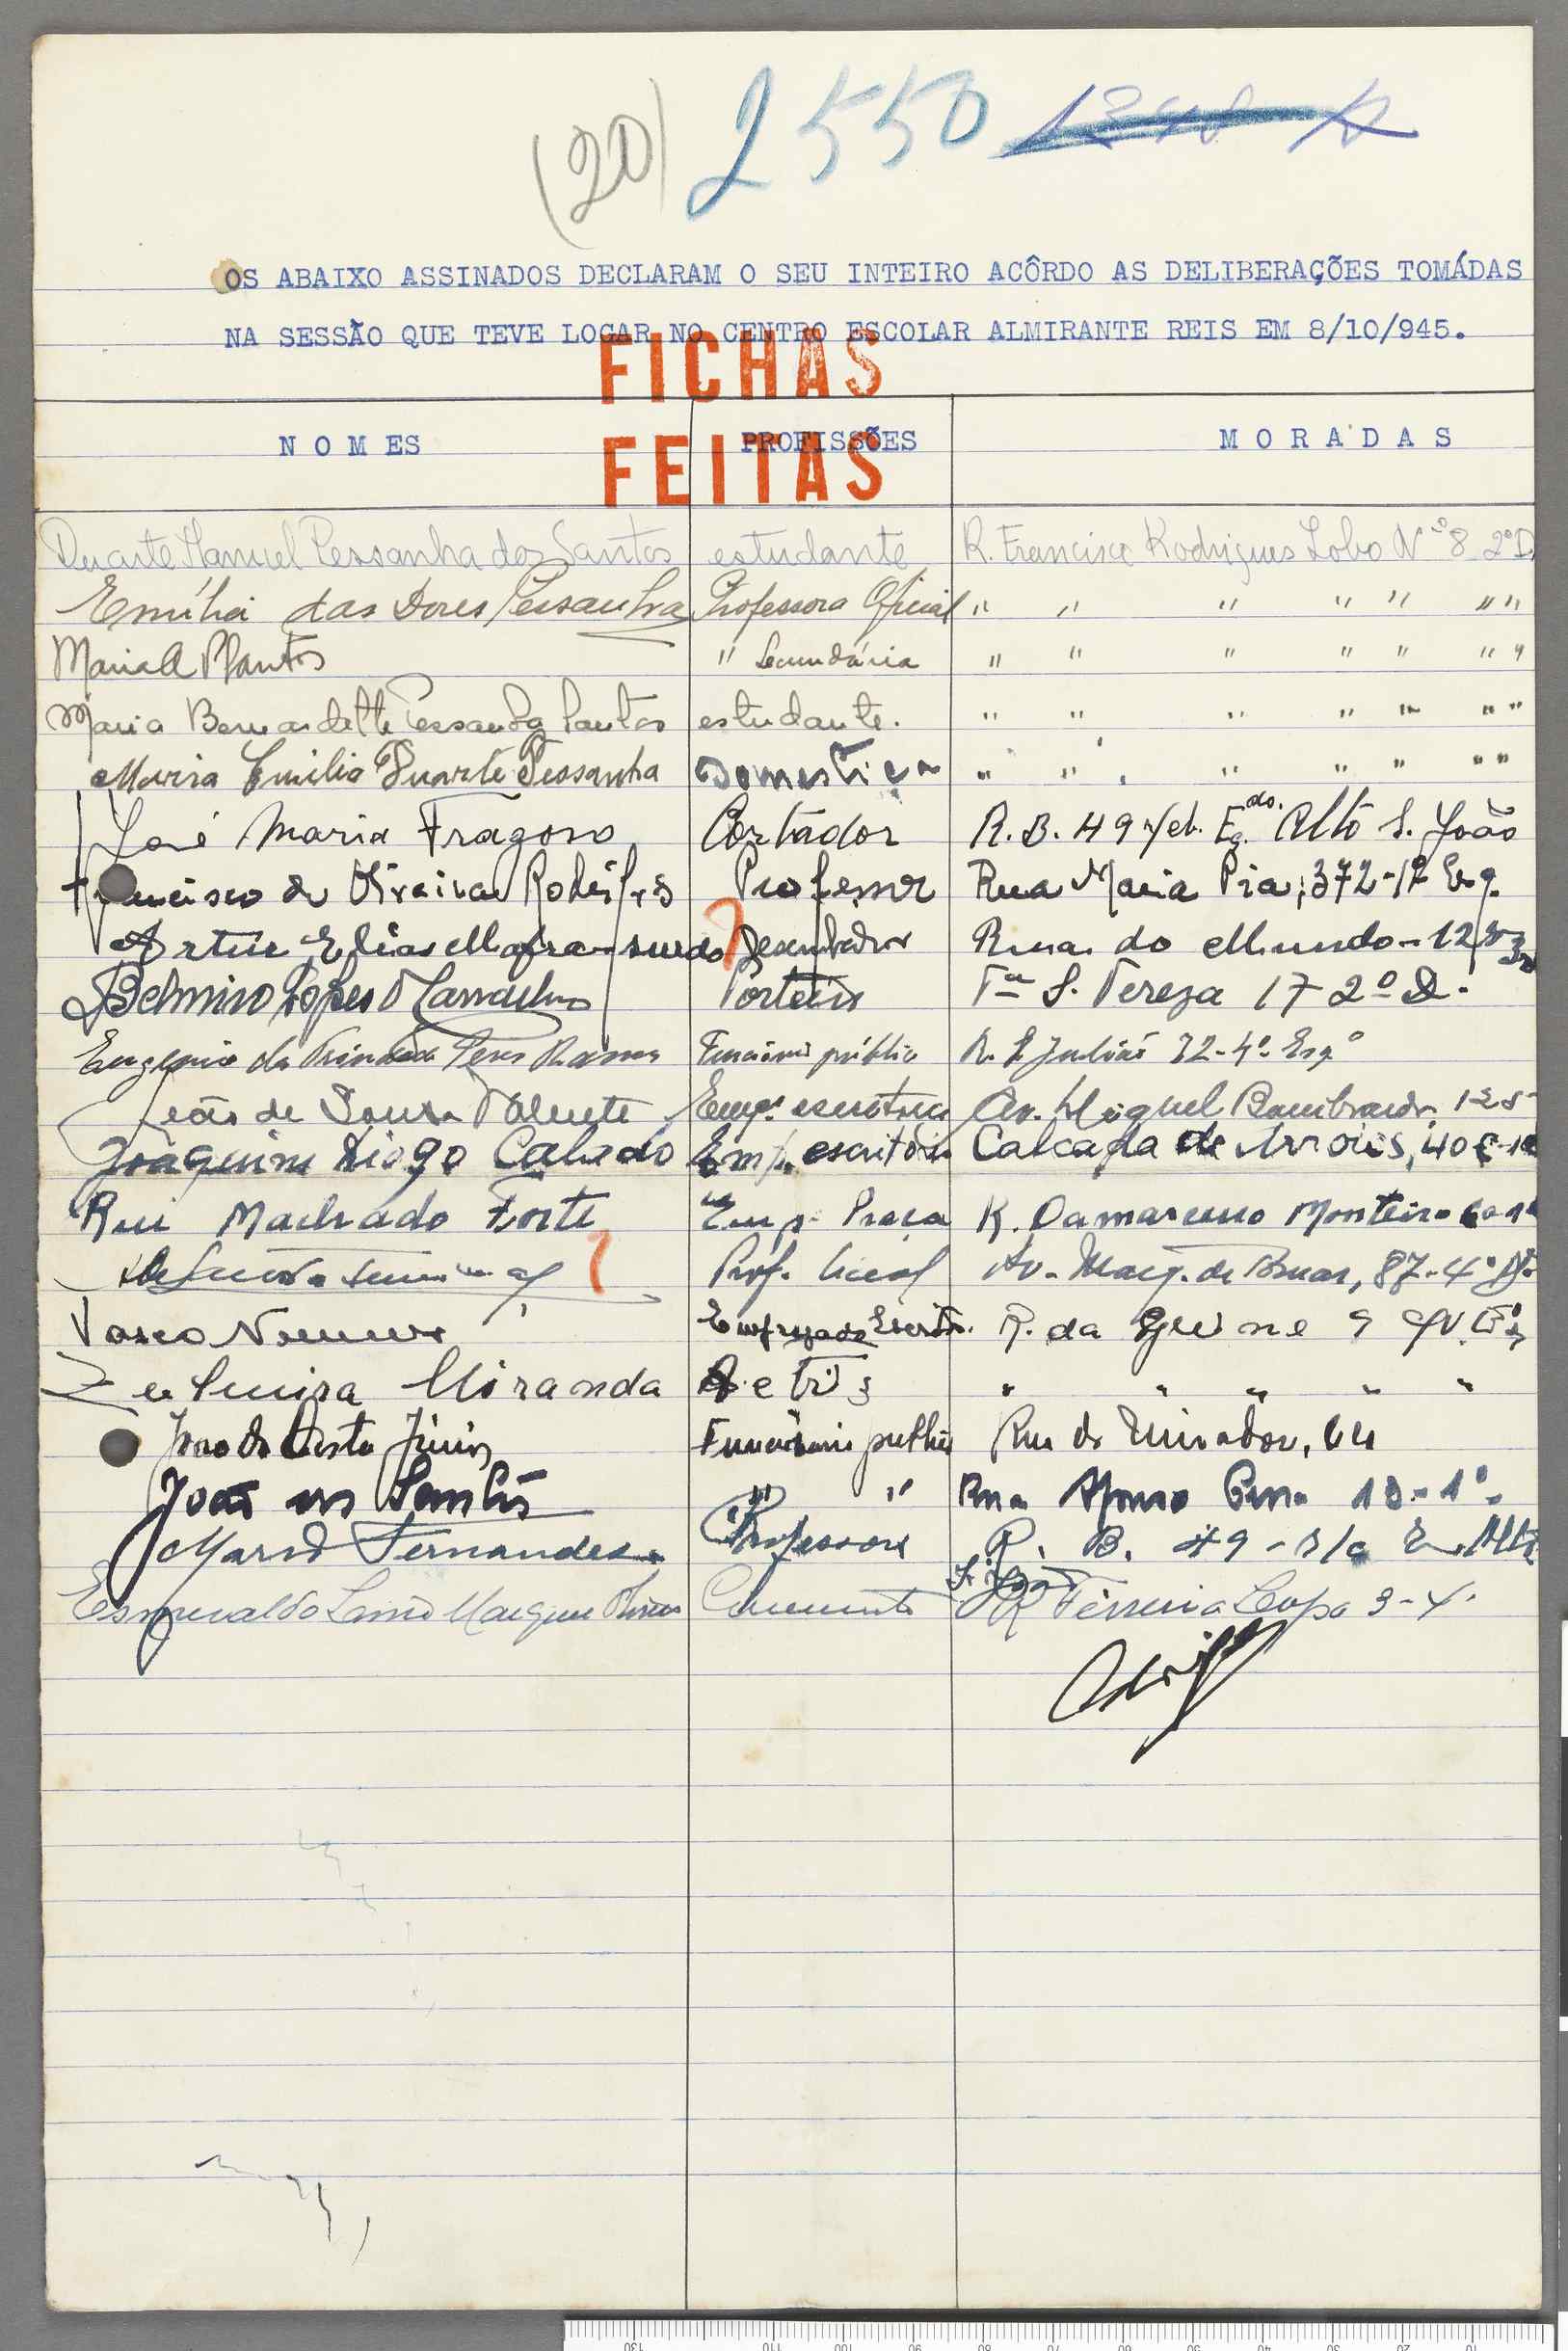 (20) 2550
OS ABAIXO ASSINADOS DECLARAM O SEU INTEIRO ACÔRDO AS DELIBERAÇÕES TOMÁDAS
NA SESSÃO QUE TEVE LOGAR NO CENTRO ESCOLAR ALMIRANTE REIS EM 8/10/945.
FICHAS
FEITAS
NOMES PROFISSÕES MORADAS
Duarte Manuel Pessanha dos Santos estudante R. Francisco Rodrigues Lobo Nº 8 2º D
Emília das Dores Pessanha Professora Oficial " " " " " " "
Maria A Santos " Secundária " " " " " " "
Maria Bernardette Pessanha Santos estudante. " " " " " " "
Maria Emilia Duarte Pessanha Domestica " " " " " " "
José Maria Fragoso Cortador R. B. 49 Alto S. João
Francisco de Oliveira Professor Rua Maria Pia, 372-1º Esq.
Artur Elias Mafra - surdo ? Desenhador Rua do Mundo - 12
Belmiro Lopes Porteiro Tª S. Tereza 17 2º D.
Eugenio da Trindade Funcionº público R. S. Julião 72-4º Esqº
João de Sousa Valente Empº escritorio Av. Miguel Bombarda, 125
Joaquim Diogo Calado Emp. escritório Calçada de Arroios, 40
Rui Machado Forte Emp. Praça R. Damasceno Monteiro
? Prof. Liceal Av. 87-4º
Vasco Empregado Escrit. R. da Guiné 9
Zulmira Miranda Actriz " " " " "
João da Costa Júnior Funcionario publico Rua do Mirador, 64
João dos Santos " " Rua Afonso 18-1º
Mario Fernandes Professor R. B. 49 -
S. João
Esmeraldo Marques R. Ferreira Lapa 3-4º